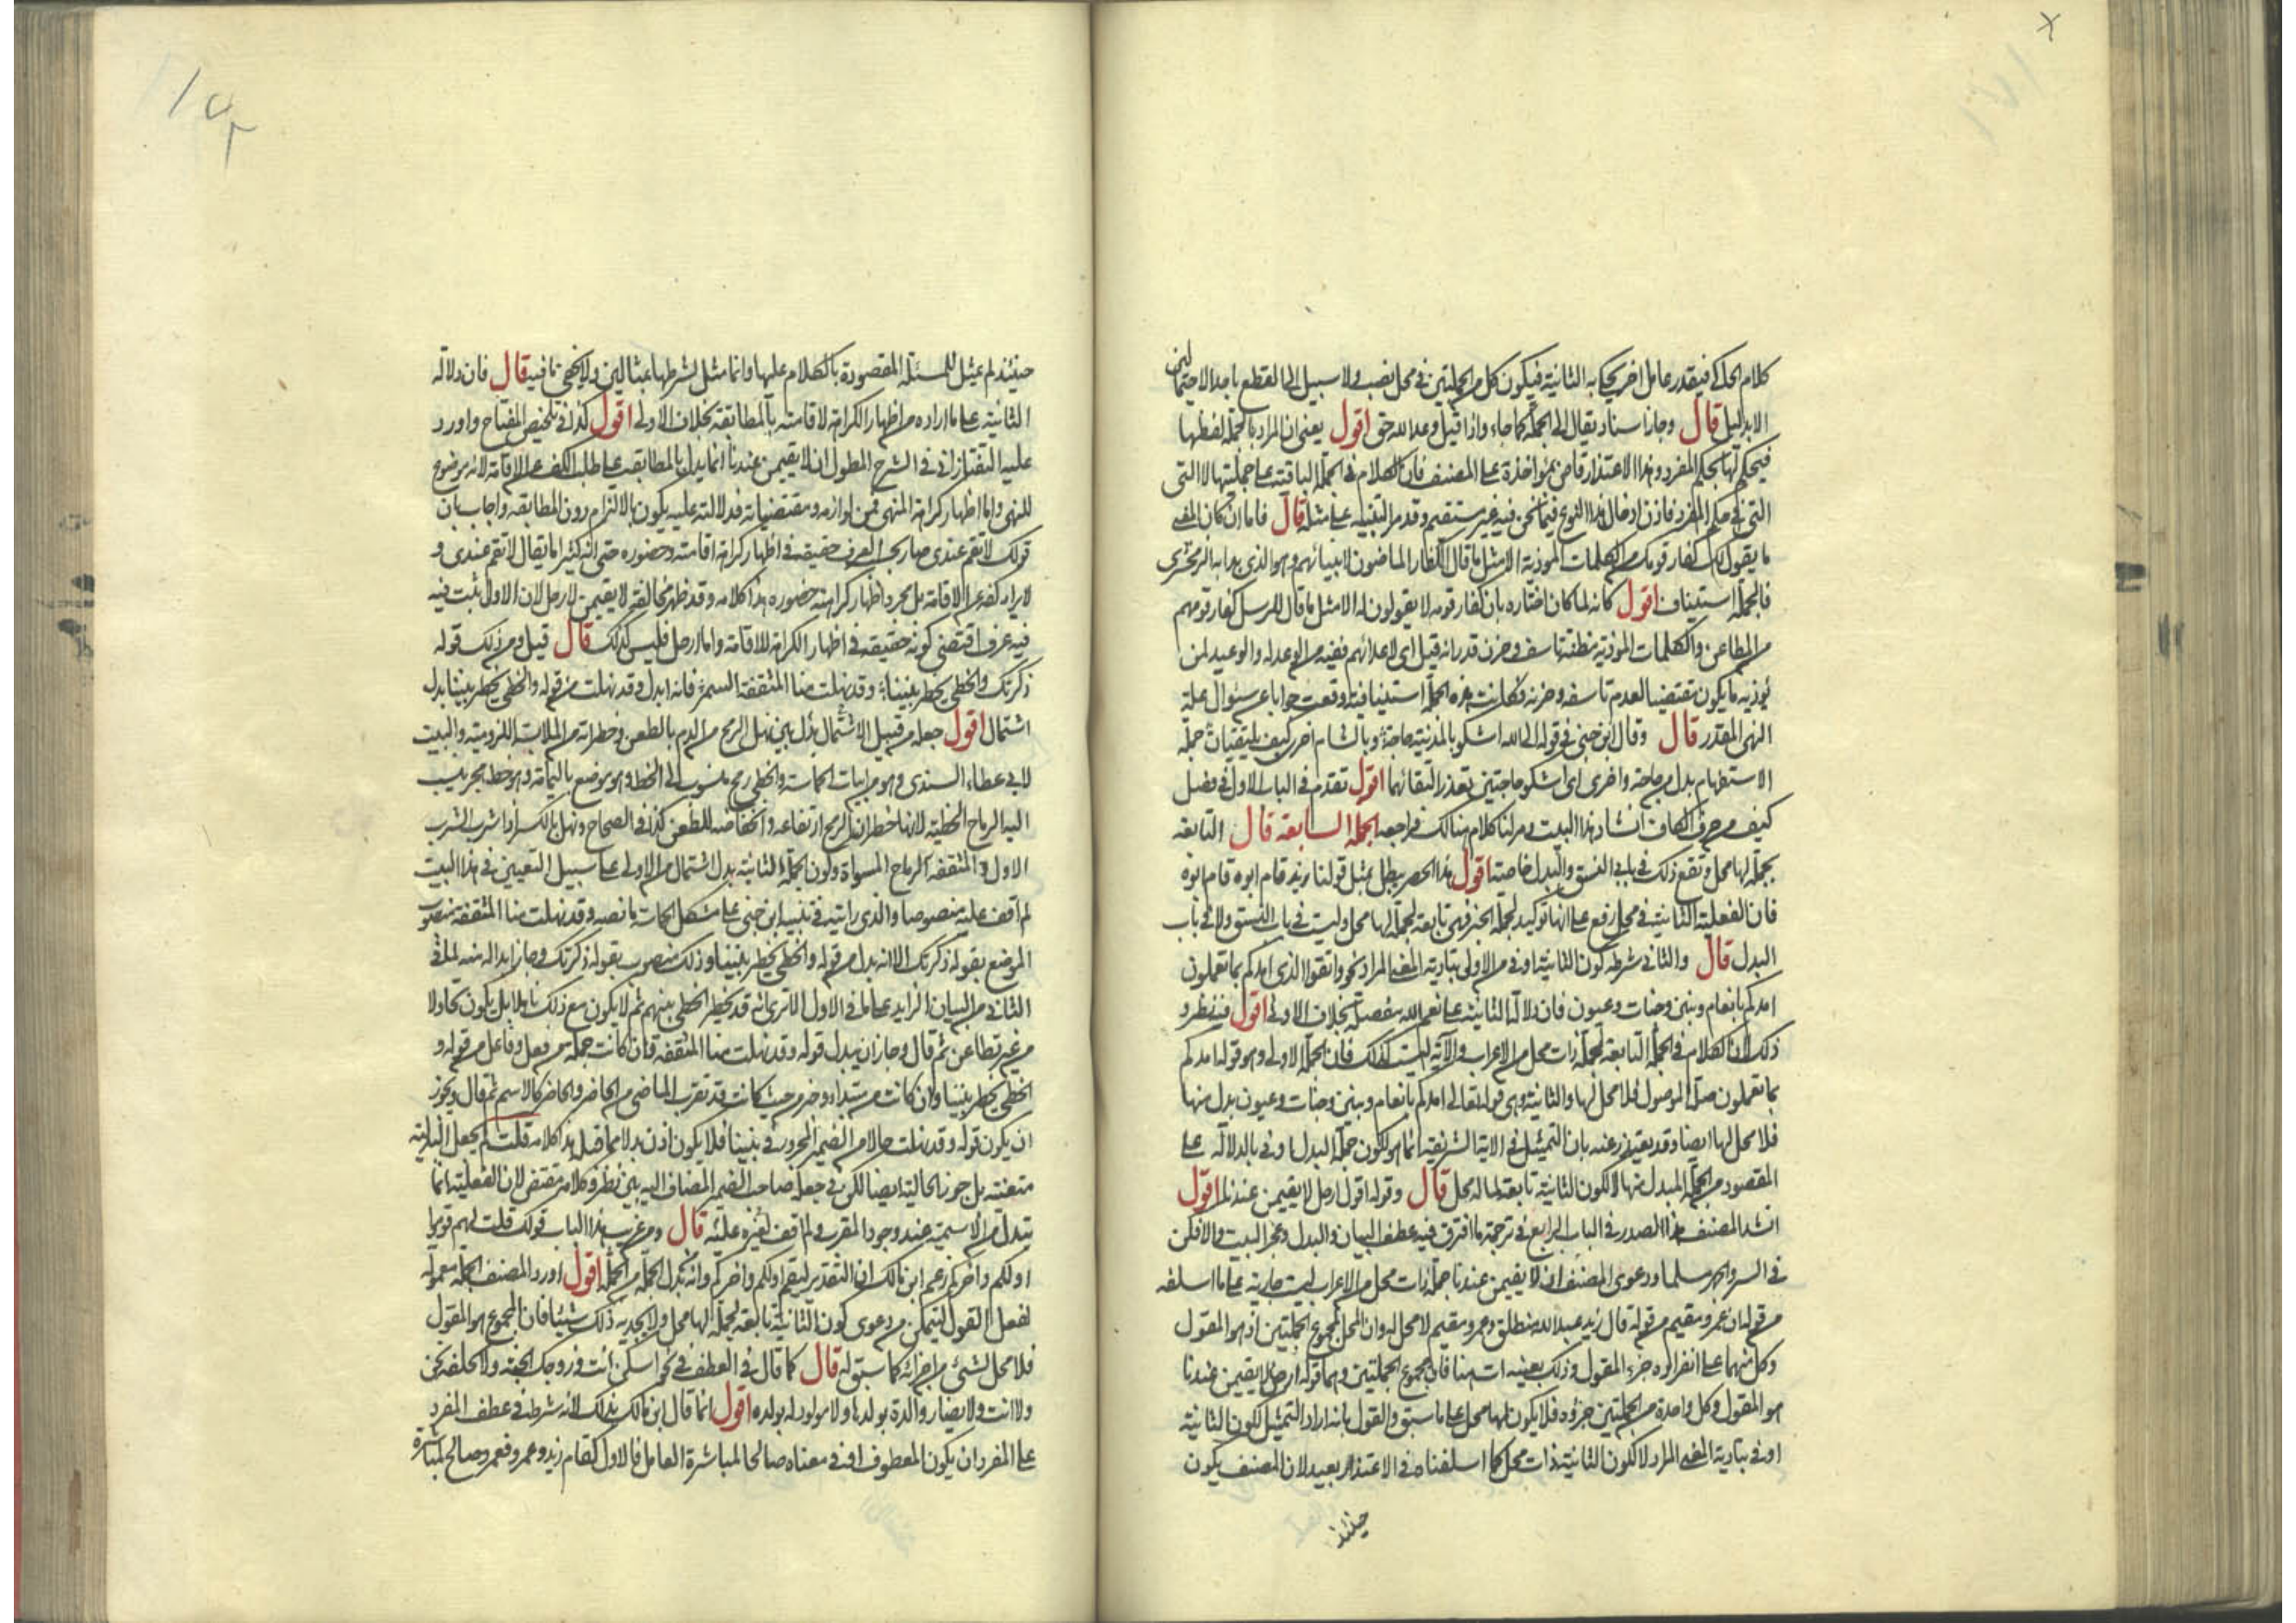 كلام الحاكي فيقدر عامل اخر يحكى به الثانية فيكون كل من الجملتين في محل نصب ولا سبيل الى القطع باحد الاحتمالين
الا بدليل قال وجاز اسناد يقال الى الجملة كما جاء واذا قيل ان وعد الله حق اقول يعني ان المراد بالجملة لفظها
فيحكم لها بحكم المفرد وهذا الاعتذار قاض بمؤاخذة على المصنف فان الكلام في الجملة الباقية على جمليتها لا التي
التي في حكم المفرد فاذن ادخال هذا النوع فيما نحن فيه غير مستقيم وقد مر التنبيه على مثله قال فاما ان كان المعنى
ما يقول لك كفار قومك من الكلمات المؤذية الا مثل ما قال الكفار الماضون لانبيائهم وهو الذي بدا به الزمخشري
فالجملة استيناف اقول كانه لما كان اختاره بان كفار قومه لا يقولون له الا مثل ما قال للرسل كفار قومهم
من المطاعن والكلمات المؤذية مظنة تاسف وحزن قدر انه قيل اي لاعدائهم ففيه من الوعد له والوعيد لمن
يؤذيه ما يكون مقتضيا لعدم تاسفه وحزنه فكانت هذه الجملة استينافية وقعت جوابا عن سؤال علة
النهي المقدر قال وقال ابن جني في قوله الى الله اشكو بالمدينة حاجة وبالشام اخرى كيف يلتقيان جملة
الاستفهام بدل من حاجة واخرى اي اشكو حاجتين تعذر التقائهما اقول تقدم في الباب الاول في فصل
كيف من حرف الكاف انشاد هذا البيت ومر لنا كلام هنالك فراجعه الجملة السابعة قال التابعة
بجملة لها محل وتقع ذلك في بابي النسق والبدل خاصة اقول هذا الحصر يبطل بمثل قولنا زيد قام ابوه قام ابوه
فان الفعلية الثانية في محل رفع على انها توكيد لجملة الخبر فهي تابعة لجملة لها محل وليست في باب النسق ولا في باب
البدل قال والثاني شرطه كون الثانية اوفى من الاولى بتادية المعنى المراد نحو واتقوا الذي امدكم بما تعملون
امدكم بانعام وبنين وجنات وعيون فان دلالة الثانية على نعم الله مفصلة بخلاف الاولى اقول فيه نظر و
ذلك لان الكلام في الجملة التابعة لجملة ذات محل من الاعراب والآية ليست كذلك فان الجملة الاولى وهو قوله امدكم
بما تعملون صلة الموصول فلا محل لها والثانية وهي قوله تعالى امدكم بانعام وبنين وجنات وعيون بدل منها
فلا محل لها ايضا وقد يعتذر عنه بان التمثيل في الاية الشريفة انما هو لكون جملة البدل اوفى بالدلالة على
المقصود من الجملة المبدل منها لا لكون الثانية تابعة لما له محل قال وقوله اقول له ارحل لا تقيمن عندنا اقول
انشد المصنف هذا الصدر في الباب الرابع في ترجمة ما افترق فيه عطف البيان والبدل وعجز البيت والا فكن
في السر والجهر مسلما ودعوى المصنف ان لا تقيمن عندنا جملة ذات محل من الاعراب ليست جارية على ما اسلفه
من قوله ان عمرو مقيم من قوله قال زيد عبدالله منطلق وعمرو مقيم لا محل له وان المحل لمجموع الجملتين اذ هو المقول
وكل منهما على انفراده جزء المقول وذلك بعينه ات هنا فان مجموع الجملتين وهما قوله ارحل لا تقيمن عندنا
هو المقول وكل واحدة من الجملتين جزؤه فلا يكون لها محل على ما سبق والقول بانه اراد التمثيل لكون الثانية
اوفى بتادية المعنى المراد لا لكون الثانية ذات محل كما اسلفناه في الاعتذار بعيد لان المصنف يكون
حينئذ
حينئذ لم يمثل للمسئلة المقصودة بالكلام عليها وانما مثل لشرطها بمثالين ولا يخفى ما فيه قال فان دلالة
الثانية على ما اراده من اظهار الكراهة لاقامته بالمطابقة بخلاف الاولى اقول كذا في تلخيص المفتاح واورد
عليه التفتازاني في الشرح المطول ان لا تقيمن عندنا انما يدل بالمطابقة على طلب الكف عن الاقامة لانه موضوع
للنهي واما اظهار كراهة المنهي فمن لوازمه ومقتضياته فدلالته عليه يكون بالالتزام دون المطابقة واجاب بان
قولك لا تقم عندي صار بحسب العرف حقيقة في اظهار كراهة اقامته وحضوره حتى انه كثيرا ما يقال لا تقم عندي و
لا يراد كفه عن الاقامة بل مجرد اظهار كراهته حضوره هذا كلامه وقد ظهر مخالفة لا تقيمن لارحل لان الاول ثبت فيه
فيه عرف اقتضى كونه حقيقة في اظهار الكراهة للاقامة واما ارحل فليس كذلك قال قيل ومن ذلك قوله
ذكرتك والخطي يخطر بيننا وقد نهلت منا المثقفة السمر فانه ابدل وقد نهلت من قوله والخطي يخطر بيننا بدل
اشتمال اقول جعله من قبيل الاشتمال بدل بين نهل الرمح من الدم بالطعن وخطرانه من الملابسة اللزومية والبيت
لابي عطاء السندي وهو من ابيات الحماسة والخطي رمح منسوب الى الخط وهو موضع باليمامة وهو خط هجر ينسب
اليه الرماح الخطية لانها خطران الرمح ارتفاعه وانخفاضه للطعن كذا في الصحاح ونهل بالكسر اذا شرب الشرب
الاول والمثقفة الرماح المسواة وكون الجملة الثانية بدل اشتمال من الاولى على سبيل التعيين في هذا البيت
لم اقف عليه منصوصا والذي رايته في تنبيه ابن جني على مشكل الحماسة ما نصه وقد نهلت منا المثقفة منصوب
الموضع بقوله ذكرتك الا انه بدل من قوله والخطي يخطر بيننا وذلك منصوب بقوله ذكرتك وجاز ابداله منه لما في
الثاني من البيان الزايد على ما في الاول الا ترى انه قد يخطر الخطي بينهم ثم لا يكون مع ذلك ناهلا بل يكون تجاولا
من غير تطاعن ثم قال وجاز ان يبدل قوله وقد نهلت منا المثقفة وان كانت جملة من فعل وفاعل من قوله و
الخطي يخطر بيننا وان كانت من مبتداء وخبر من حيث كانت قد تقرب الماضي من الحاضر والحاضر كالاسم ثم قال ويجوز
ان يكون قوله وقد نهلت حالا من الضمير المجرور في بيننا فلا يكون اذن بدلا مما قبله هذا كلامه قلت لم يجعل البدلية
متعينة بل جوز الحالية ايضا لكن في جعله صاحب الضمير المضاف اليه بين نظر وكلامه مقتض لان الفعلية انما
تبدل من الاسمية عند وجود المقرب ولم اقف لغيره عليه قال ومن غريب هذا الباب قولك قلت لهم قوموا
اولكم واخركم زعم ابن مالك ان التقدير ليقم اولكم واخركم وانه بدل الجملة من الجملة اقول اورد المصنف الجملة معمولة
لفعل القول ليتمكن من دعوى كون الثانية تابعة لجملة لها محل ولا يجديه ذلك شيئا فان المجموع هو المقول
فلا محل لشئ من اجزائه كما سبق له قال كما قال في العطف في نحو اسكن انت وزوجك الجنة ولا نخلفه نحن
ولا انت ولا يضار والدة بولدها ولا مولود له بولده اقول انما قال ابن مالك بذلك لانه شرط في عطف المفرد
على المفرد ان يكون المعطوف او في معناه صالحا لمباشرة العامل فالاول كقام زيد وعمرو فعمرو صالح لمباشرة